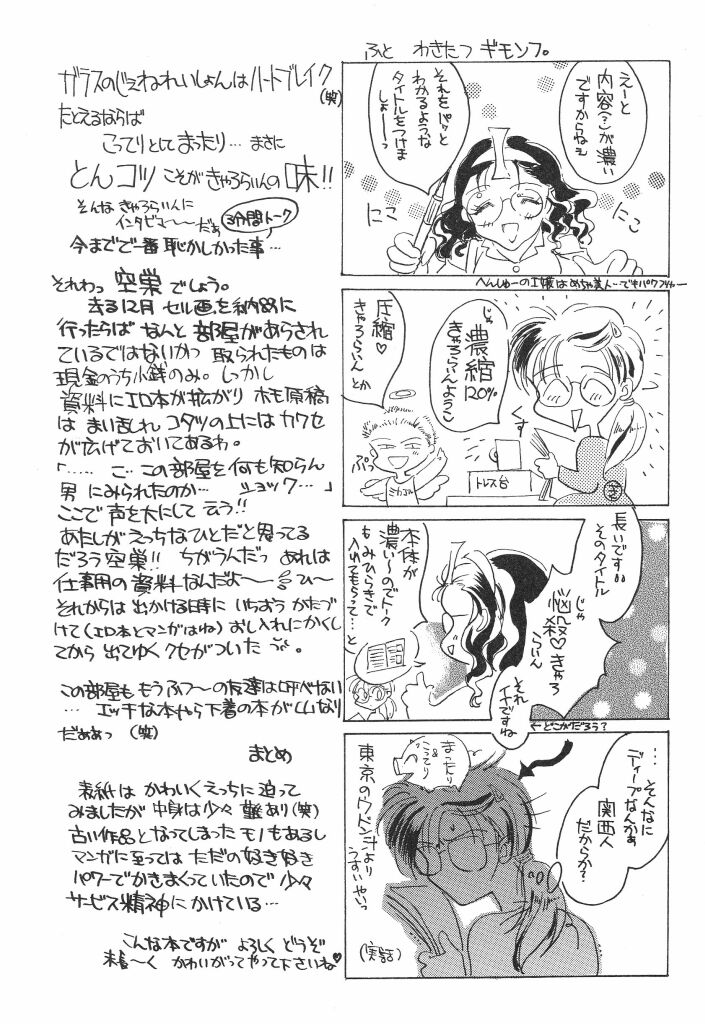 ふと わきたつ ギモンフ。
えーと
内容(?)が濃い
ですからねぇ
それをパッと
わかるような
タイトルをつけま
しょーっ
にこ
にこ
へんしゅーのI嬢はめちゃ美人
じゃ
濃縮
120%
きゃろらいんようこ
圧縮♡
きゃろらいん
とか
くす
ぷっ
トレス台
長いです。。
そのタイトル
じゃ
悩殺♡きゃろ
らいん
それ
イイですね
本体が
濃い〜のでトーク
もみひらきで
入れてもらって…と
昔話
←どこがだろう?
……そんなに
ディープなんかぁ
関西人
だからか?
まったり
&
こってり
東京のウドン汁より
うすいやいっ
(実話)
ガラスのじぇねれいしょんはハートブレイク
(笑)
たとえるならば
こってりとしてまったり… まさに
とんコツ こそがきゃろらいんの味!!
そんな きゃろらいんに
インタビュ〜〜だぁ
3分間トーク
今までで一番恥かしかった事…
それわっ 空巣 でしょう。
去る12月 セル画を納めに
行ったらば なんと 部屋があらされ
ているではないかっ 取られたものは
現金のうち小銭のみ。しっかし
資料にエロ本が拡がり ホモ原稿
は まい乱れ コタツの上にはカワセ
が広げておいてあるわ。
「…… こ…この部屋を何も知らん
男 にみられたのか… ショック… 」
ここで声を大にして 云う!!
あたしがえっちなひとだと思ってる
だろう空巣!! ちがうんだっ あれは
仕事用の資料なんだよ〜〜 ひ〜
それからは 出かける時に いちおう かたづ
けて(エロ本とマンガはね)おし入れにかくし
てから 出てゆく クセがついた
この部屋も もうふつ〜の友達は呼べない
… エッチな本やら下着の本がいいなり
だぁぁっ (笑)
まとめ
表紙は かわいくえっちに迫って
みましたが 中身は少々 難あり(笑)
古い作品となってしまった モノもあるし
マンガに至っては ただの好き好き
パワーでかきまくっていたので 少々
サービス精神にかけている…
こんな本ですが よろしく どうぞ
末長〜く かわいがってやって下さいね♥